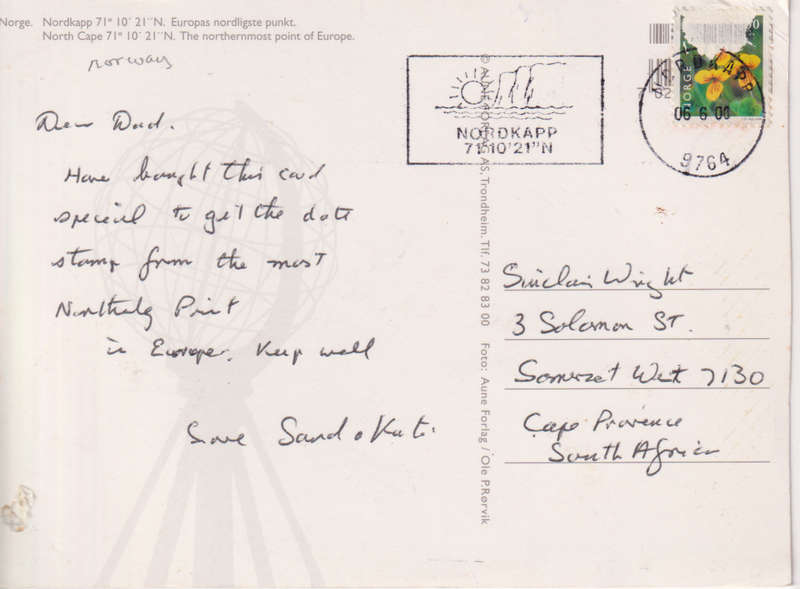 Norge. Nordkapp 71° 10' 21"N. Europas nordligste punkt.
North Cape 71° 10' 21"N. The northernmost point of Europe.
norway
Dear Dad.
Have bought this card
special to get the date
stamp from the most
Northerly Point
in Europe. Keep well
Love Sand Kate.
© AUNE FORLAG AS, Trondheim. Tlf. 73 82 83 00 Foto: Aune Forlag / Ole P.Rørvik
NORDKAPP
71°10'21"N
NORGE
NORDKAPP
06 6 00
9764
Sinclair Wright
3 Solomon ST.
Somerset West 7130
Cape Province
South Africa